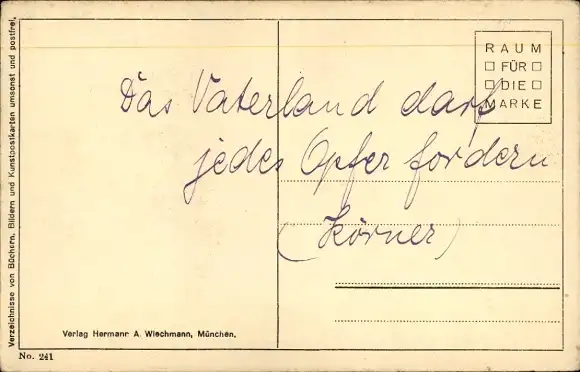 Das Vaterland darf
jedes Opfer fordern
(Körner)
RAUM
FÜR
DIE
MARKE
Verzeichnisse von Büchern, Bildern und Kunstpostkarten umsonst und postfrei.
Verlag Hermann A. Wiechmann, München.
No. 241